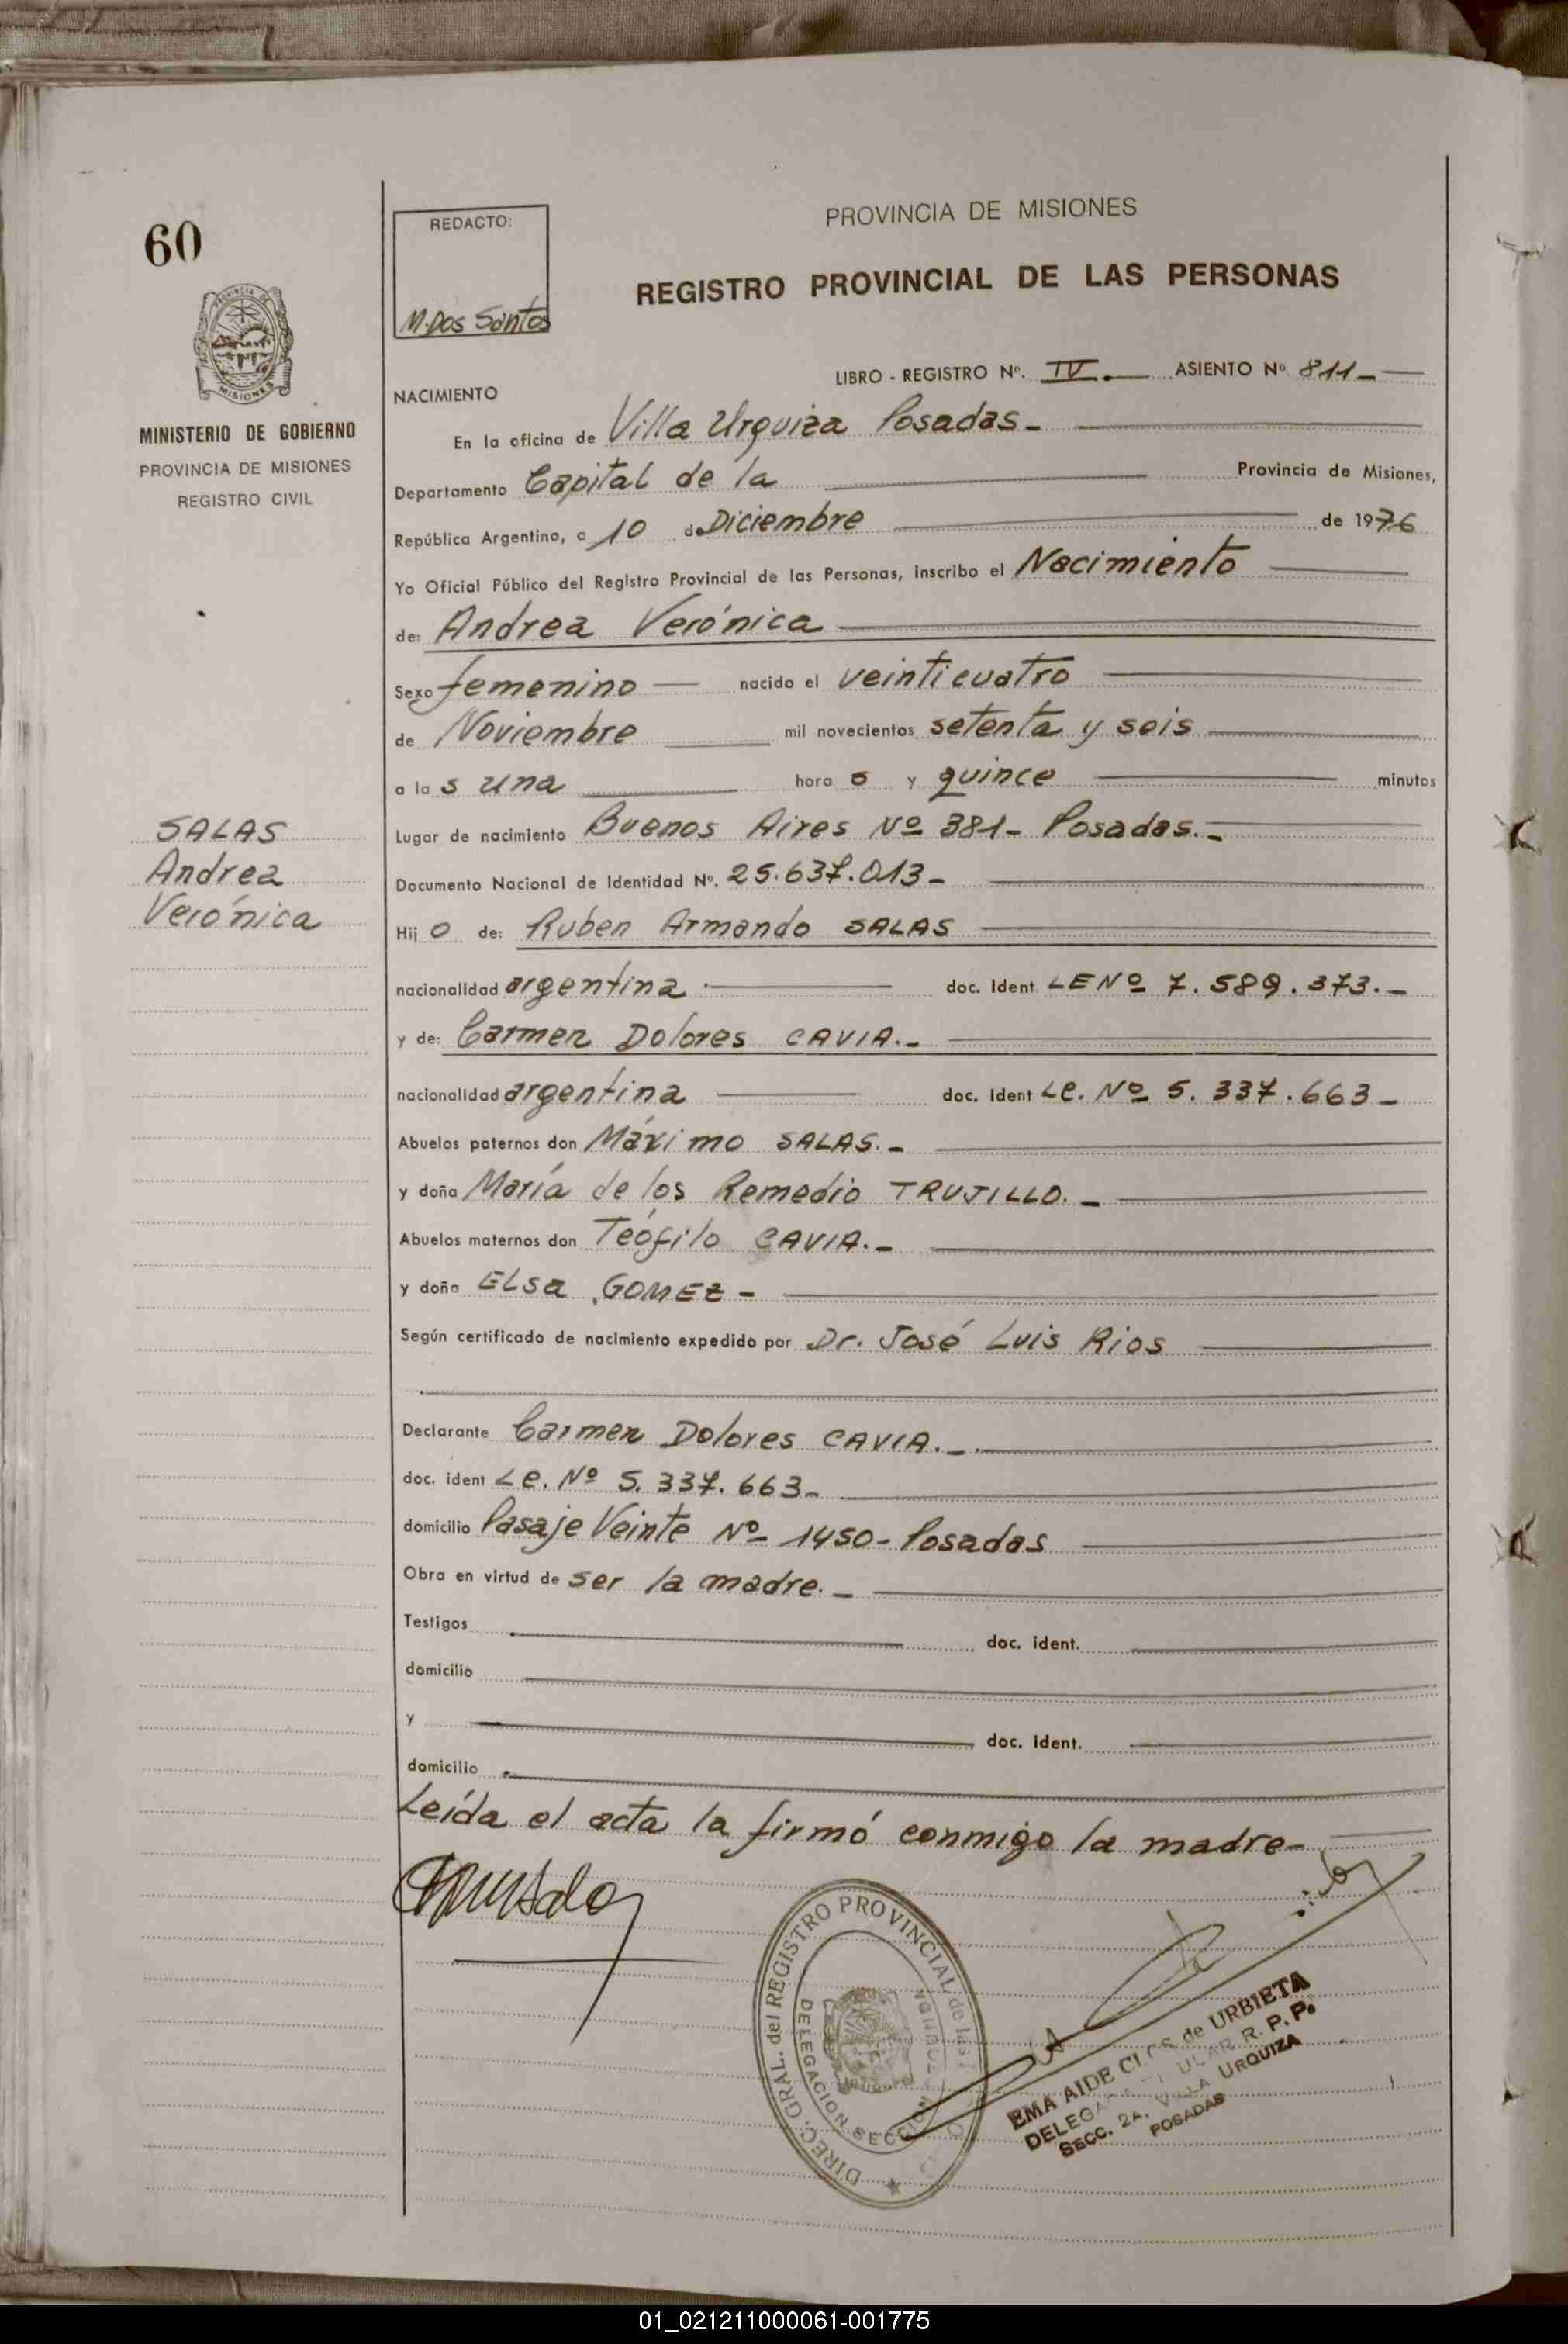 60
REDACTO:
M. Dos Santos
PROVINCIA DE MISIONES
REGISTRO PROVINCIAL DE LAS PERSONAS
MISIONES
MINISTERIO DE GOBIERNO
PROVINCIA DE MISIONES
REGISTRO CIVIL
LIBRO - REGISTRO Nº. IV. ASIENTO Nº 811-
NACIMIENTO
En la oficina de Villa Urquiza Posadas-
Departamento Capital de la Provincia de Misiones,
República Argentina, a 10 de Diciembre de 1976
Yo Oficial Público del Registro Provincial de las Personas, inscribo el Nacimiento
de: Andrea Verónica
Sexo femenino nacido el veinticuatro
de Noviembre mil novecientos setenta y seis
a la s una hora s y quince minutos
Lugar de nacimiento Buenos Aires Nº 381- Posadas.-
Documento Nacional de Identidad Nº. 25.637.013-
SALAS
Andrea
Verónica
Hij o de: Ruben Armando SALAS
nacionalidad argentina doc. Ident LE Nº 7.589.373.-
y de: Carmen Dolores CAVIA.-
nacionalidad argentina doc. Ident Le. Nº 5.337.663-
Abuelos paternos don Máximo SALAS.-
y doña María de los Remedio TRUJILLO.-
Abuelos maternos don Teófilo CAVIA.-
y doña ELSa GOMEZ-
Según certificado de nacimiento expedido por Dr. José Luis Rios
Declarante Carmen Dolores CAVIA.-
doc. ident Le. Nº 5.337.663-
domicilio Pasaje Veinte Nº 1450- Posadas
Obra en virtud de ser la madre.-
Testigos doc. ident.
domicilio
y doc. ident.
domicilio
Leída el acta la firmó conmigo la madre-
DIREC. GRAL. del REGISTRO PROVINCIAL de las
DELEGACION SECCION
EMA AIDE de URBIETA
R. P. P.
SECC. 2A. VILLA URQUIZA
POSADAS
01_021211000061-001775